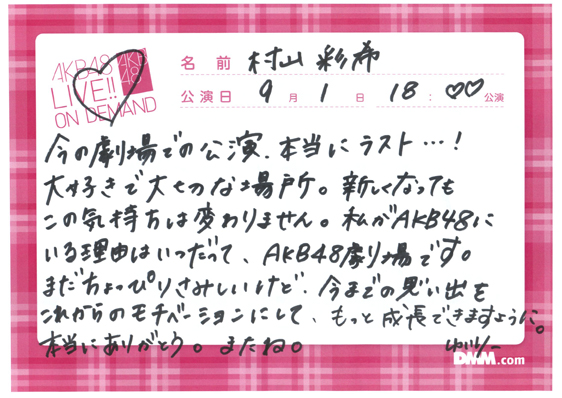 AKB48
LIVE!!
ON DEMAND
AKB
48
名前 村山彩希
公演日 9月1日 18:♡♡公演
今の劇場での公演、本当にラスト…!
大好きで大切な場所。新しくなっても
この気持ちは変わりません。私がAKB48に
いる理由はいつだって、AKB48劇場です。
まだちょっぴりさみしいけど、今までの思い出を
これからのモチベーションにして、もっと成長できますように。
本当にありがとう。またね。
ゆいりー
DMM.com